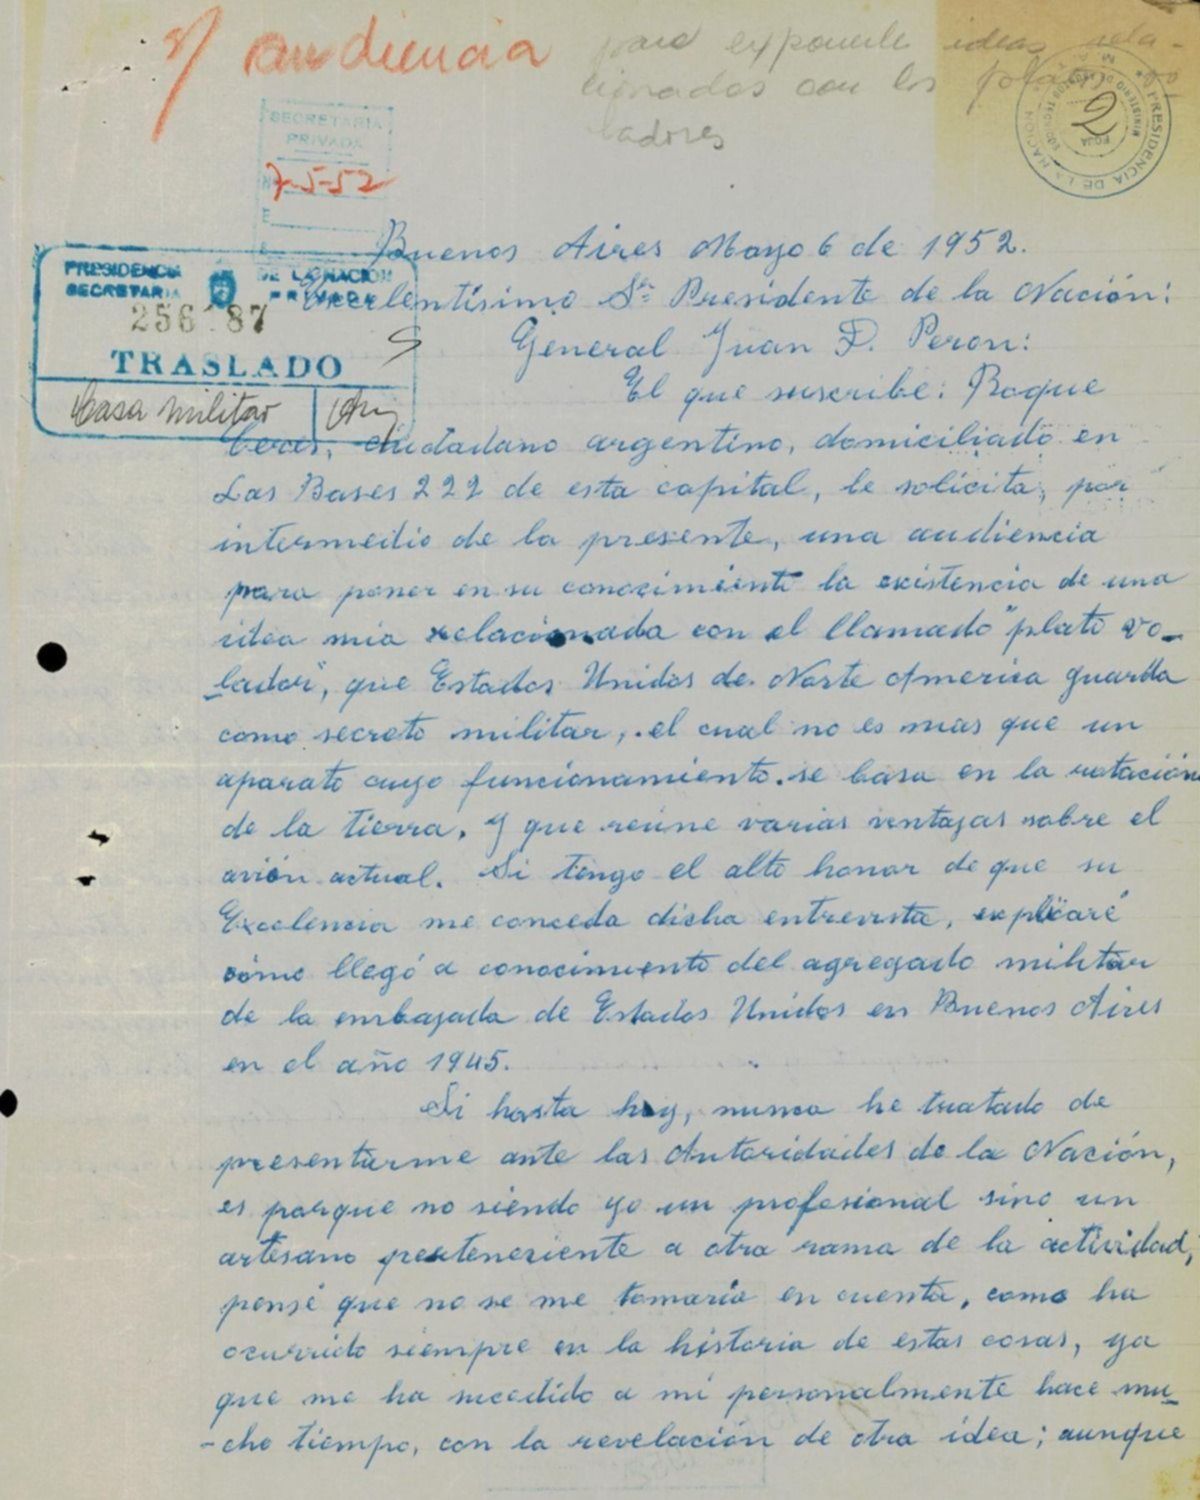 s/ audiencia para exponerle ideas rela-
cionadas con los platos vo
ladores
SECRETARIA
PRIVADA
7-5-52
PRESIDENCIA DE LA NACION
MINISTERIO DE ASUNTOS TECNICOS
FOLIA
2
Buenos Aires Mayo 6 de 1952.
PRESIDENCIA DE LA NACION
SECRETARIA PRIVADA
256187
TRASLADO
Casa Militar
Excelentísimo Sr. Presidente de la Nación:
General Juan D. Peron:
El que suscribe: Roque
ciudadano argentino, domiciliado en
Las Bases 222 de esta capital, le solicita, por
intermedio de la presente, una audiencia
para poner en su conocimiento la existencia de una
idea mia relacionada con el llamado "plato vo-
lador", que Estados Unidos de Norte America guarda
como secreto militar, el cual no es mas que un
aparato cuyo funcionamiento se basa en la rotación
de la tierra, y que reúne varias ventajas sobre el
avión actual. Si tengo el alto honor de que su
Excelencia me conceda dicha entrevista, explicaré
cómo llegó a conocimiento del agregado militar
de la embajada de Estados Unidos en Buenos Aires
en el año 1945.
Si hasta hoy, nunca he tratado de
presentarme ante las Autoridades de la Nación,
es porque no siendo yo un profesional sino un
artesano perteneciente a otra rama de la actividad,
pensé que no se me tomaría en cuenta, como ha
ocurrido siempre en la historia de estas cosas, ya
que me ha sucedido a mí personalmente hace mu-
-cho tiempo, con la revelación de otra idea; aunque